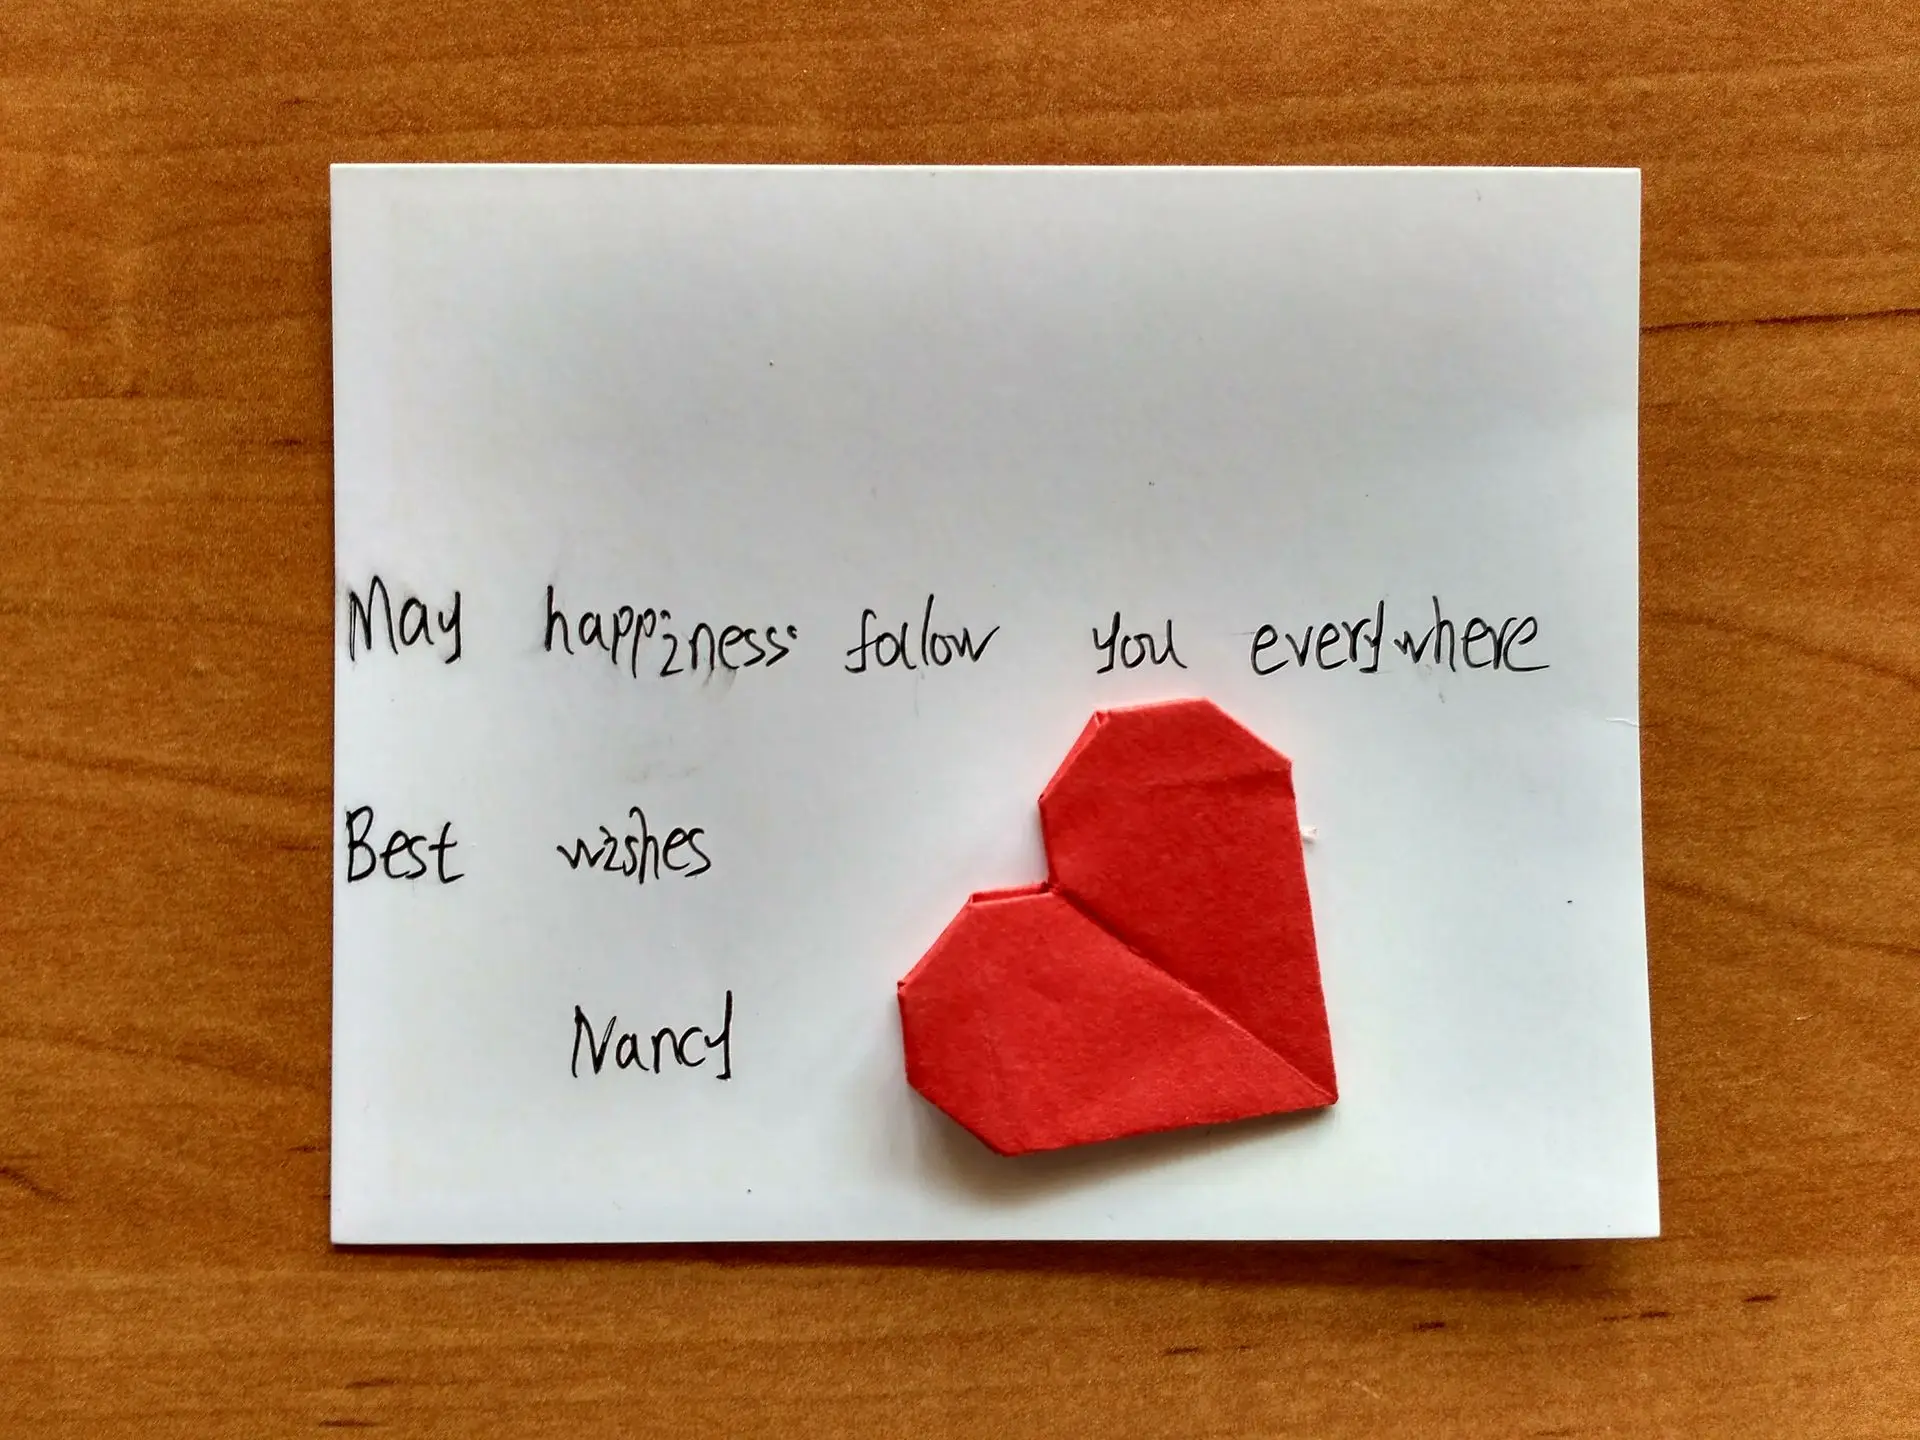 May happiness follow you everywhere
Best wishes
Nancy